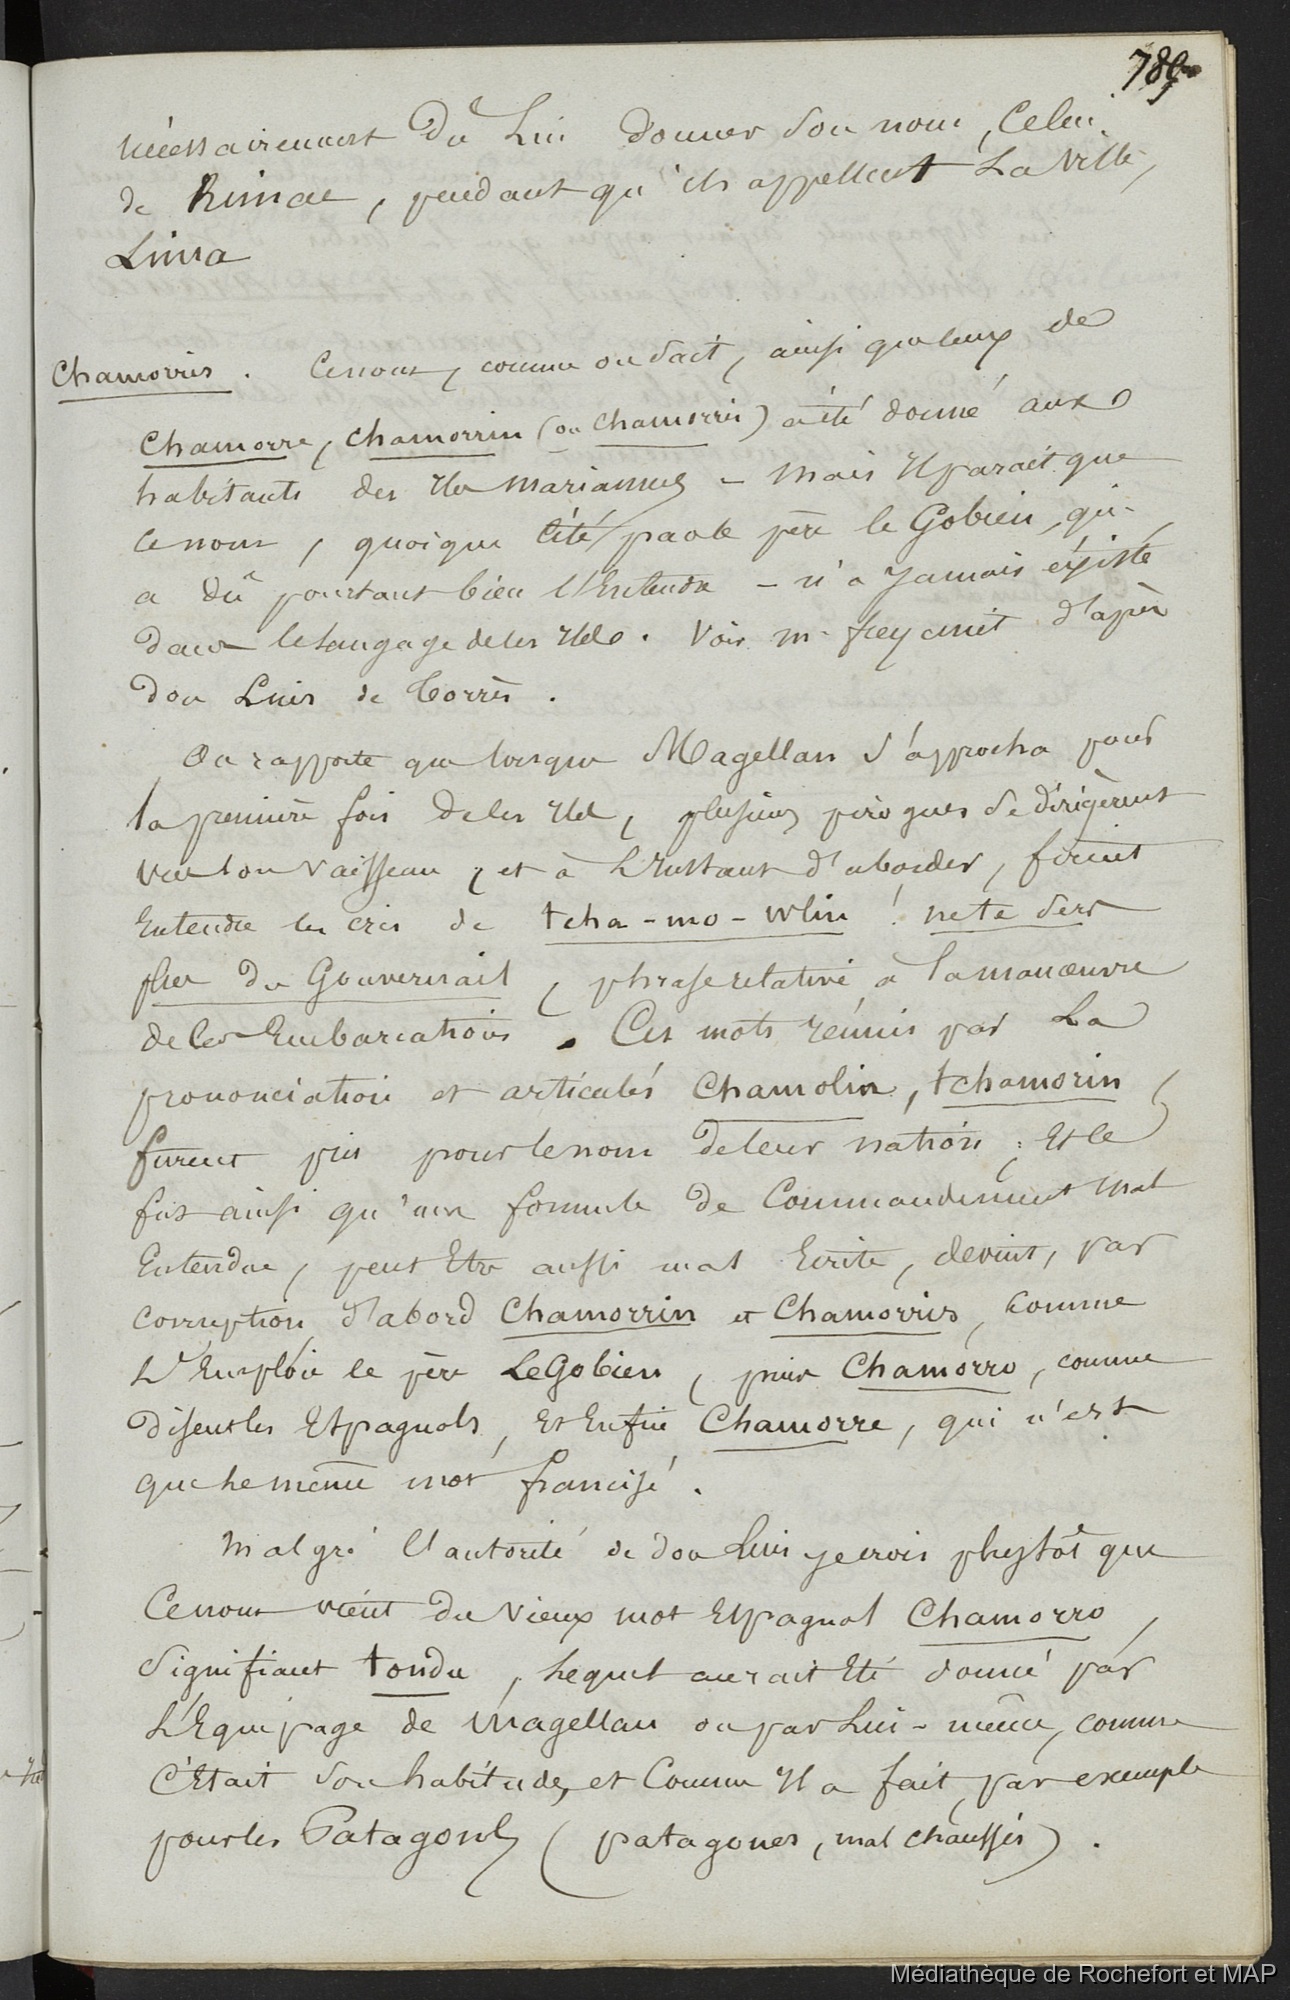 789
nécessairement dû Lui donner son nom, Celui
de Rimac, pendant qu'ils appellent La Ville,
Lima
Chamorris. Ce nom, comme on sait, ainsi que ceux de
Chamorre, Chamorrin (ou Chamorris) a été donné aux
habitants des Iles mariannes - mais Il parait que
Ce nom, quoique Cité par le père le Gobien, qui
a dû pourtant bien l'Entendre - n'a Jamais éxisté
dans le Langage de Ces Iles. Voir m. freycinet d'après
don Luis de Torrès.
On rapporte que lorsque Magellan S'approcha pour
la première fois de Ces Iles, plusieurs pirogues Se dirigèrent
vers Son Vaisseau, et à L'Instant d'aborder, firent
Entendre les cris de tcha-mo-wlin! ne te Sers
plus du Gouvernail, phrase relative à la manœuvre
de Ces Embarcations. Ces mots réunis par La
prononciation et articulés Chamolin, tchamorin,
furent pris pour le nom de leur nation ; Et Ce
fut ainsi qu'une formule de Commandement mal
Entendue, peut Etre aussi mal Ecrite, devint, par
Corruption d'abord Chamorrin et Chamorris, comme
L'Emploie le père Le Gobien, puis Chamorro, comme
disent les Espagnols, Et Enfin Chamorre, qui n'est
que Le même mot francisé.
Malgré l'autorité de don Luis je crois plustôt que
Ce nom vient du Vieux mot Espagnol Chamorro,
Signifiant tondu, Lequel aurait Eté donné par
L'Equipage de Magellan ou par Lui-même, comme
C'Etait Son habitude, et Comme Il a fait, par exemple
pour les Patagons (patagones, mal chaussés).
Médiathèque de Rochefort et MAP